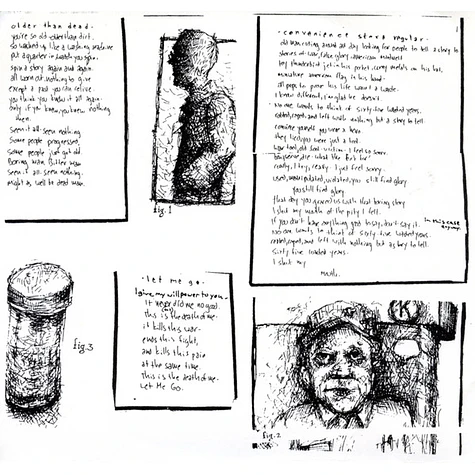 older than dead.
you're so old older than dirt.
so washed up like a washing machine
put a quarter in watch you spin.
spin a story again and again.
all worn out nothing to give
except a past you can relive
you think you know it all again
only if you knew, you knew nothing
then.
Seen it all. seen nothing
Some people progressed,
Some people just got old.
Boring, bitter now
Seen it all. seen nothing.
Might as well be dead now.
fig. 1
· convenience store regular ·
old man sitting around all day looking for people to tell a story to
stories of war, fake glory american
in his pocket, army medals on his hat.
miniature american flag in his hand.
all pops to prove his life wasn't a waste.
I know different,
No one wants to think of sixty five wasted years.
robbed, raped, and left with nothing but a story to tell.
convince yourself you were a hero
they lied you were just a tool.
war tool, old fool victim. I feel so sorry.
what the fuck for?
really, I try, really I just feel sorry.
used, manipulated, violated, you still find glory
you still find glory
that day you graced us with that boring story
I shut my mouth of the pity I felt.
if you don't have anything good to say, don't say it.
In this case
anyway.
No one wants to think of sixty five wasted years.
robbed, raped, and left with nothing but a story to tell.
Sixty five wasted years.
I shut my
mouth.
fig. 3
· let me go ·
I give my will power to you.
It never did me no good.
this is the death of me.
it kills this war
ends this fight,
and kills this pain
at the same time.
this is the death of me.
Let Me Go.
K
fig. 2